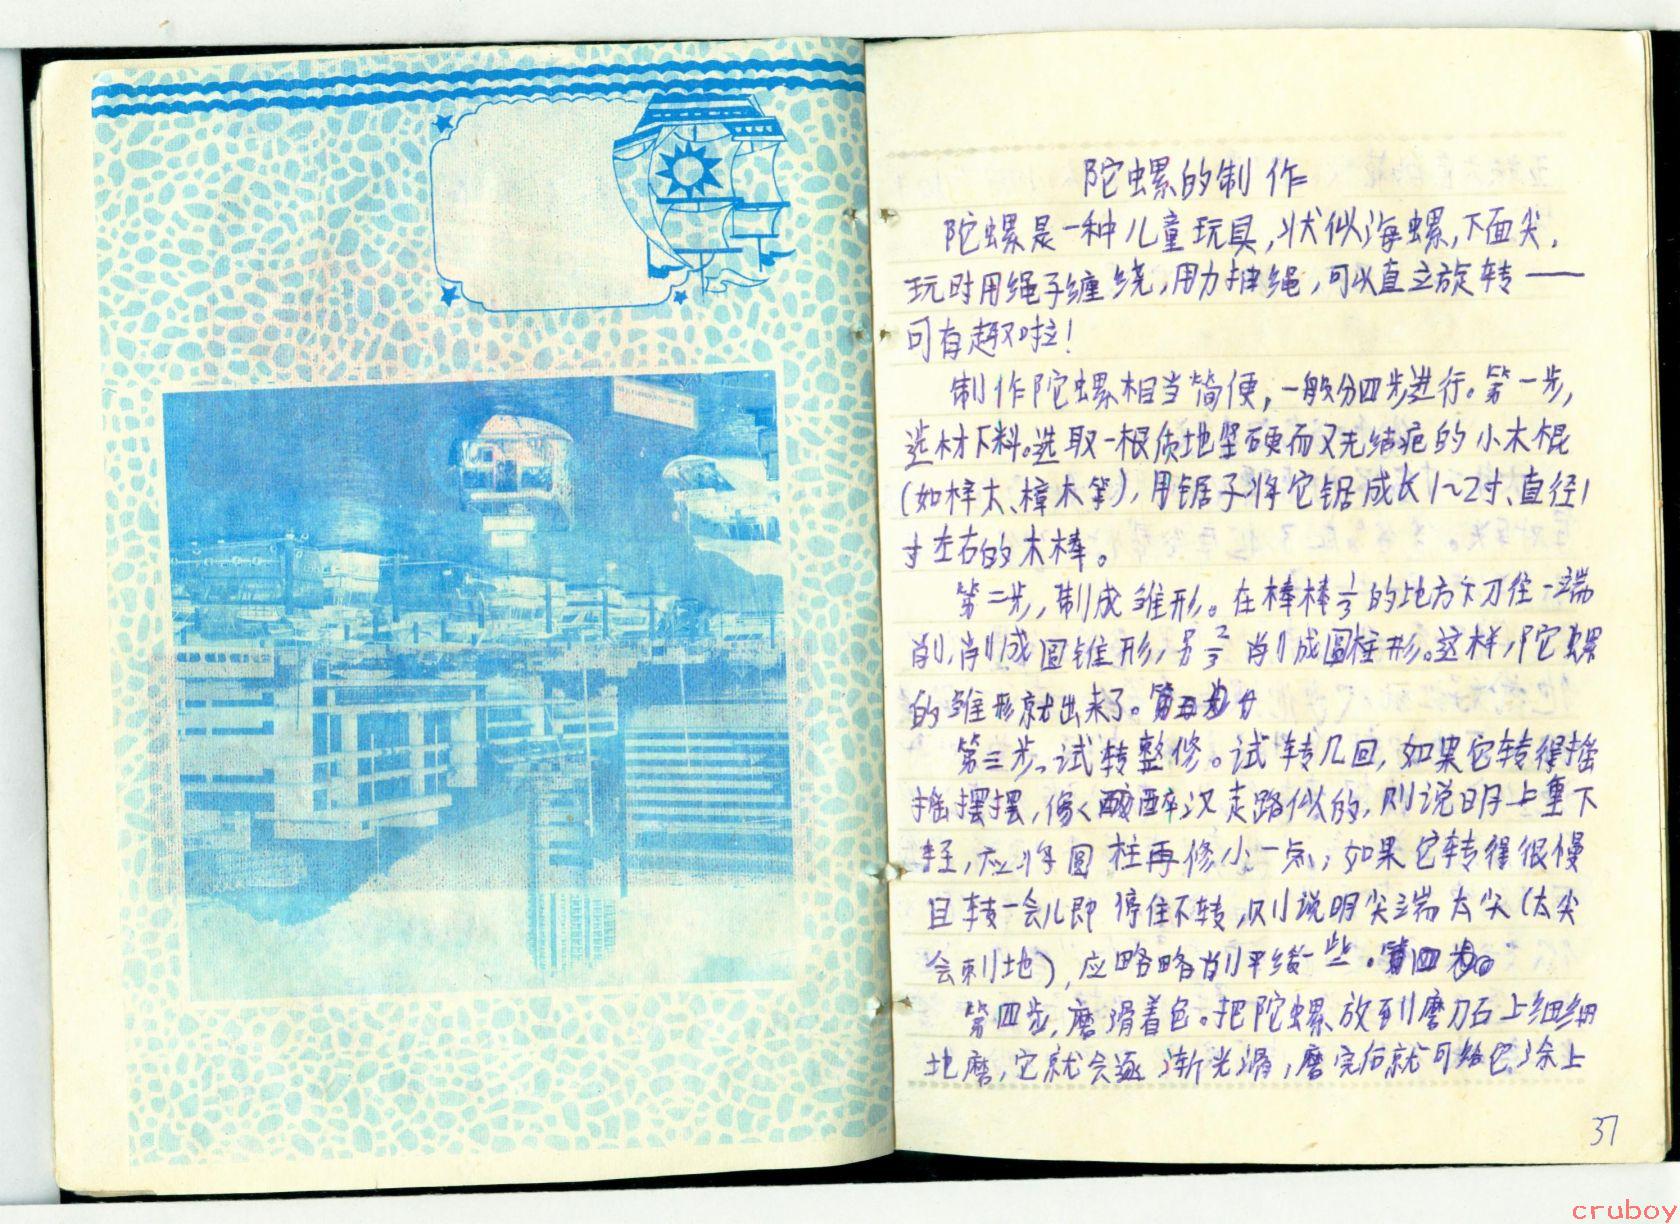 陀螺的制作
陀螺是一种儿童玩具,状似海螺,下面尖,
玩时用绳子缠绕,用力抽绳,可以直立旋转——
可有趣啦!
制作陀螺相当简便,一般分四步进行。第一步,
选材下料。选取一根质地坚硬而又无结疤的小木棍
(如梓木、樟木等),用锯子将它锯成长1~2寸、直径1
寸左右的木棒。
第二步,制成锥形。在棒棒1/3的地方下刀往一端
削,削成圆锥形,另2/3削成圆柱形。这样,陀螺
的锥形就出来了。
第三步、试转整修。试转几回,如果它转得摇
摇摆摆,像醉汉走路似的,则说明上重下
轻,应将圆柱再修小一点;如果它转得很慢
且转一会儿即停住不转,则说明尖端太尖(太尖
会刺地),应略略削平缓一些。
第四步,磨滑着色。把陀螺放到磨刀石上细细
地磨,它就会逐渐光滑,磨完后就可给它涂上
37
cruboy